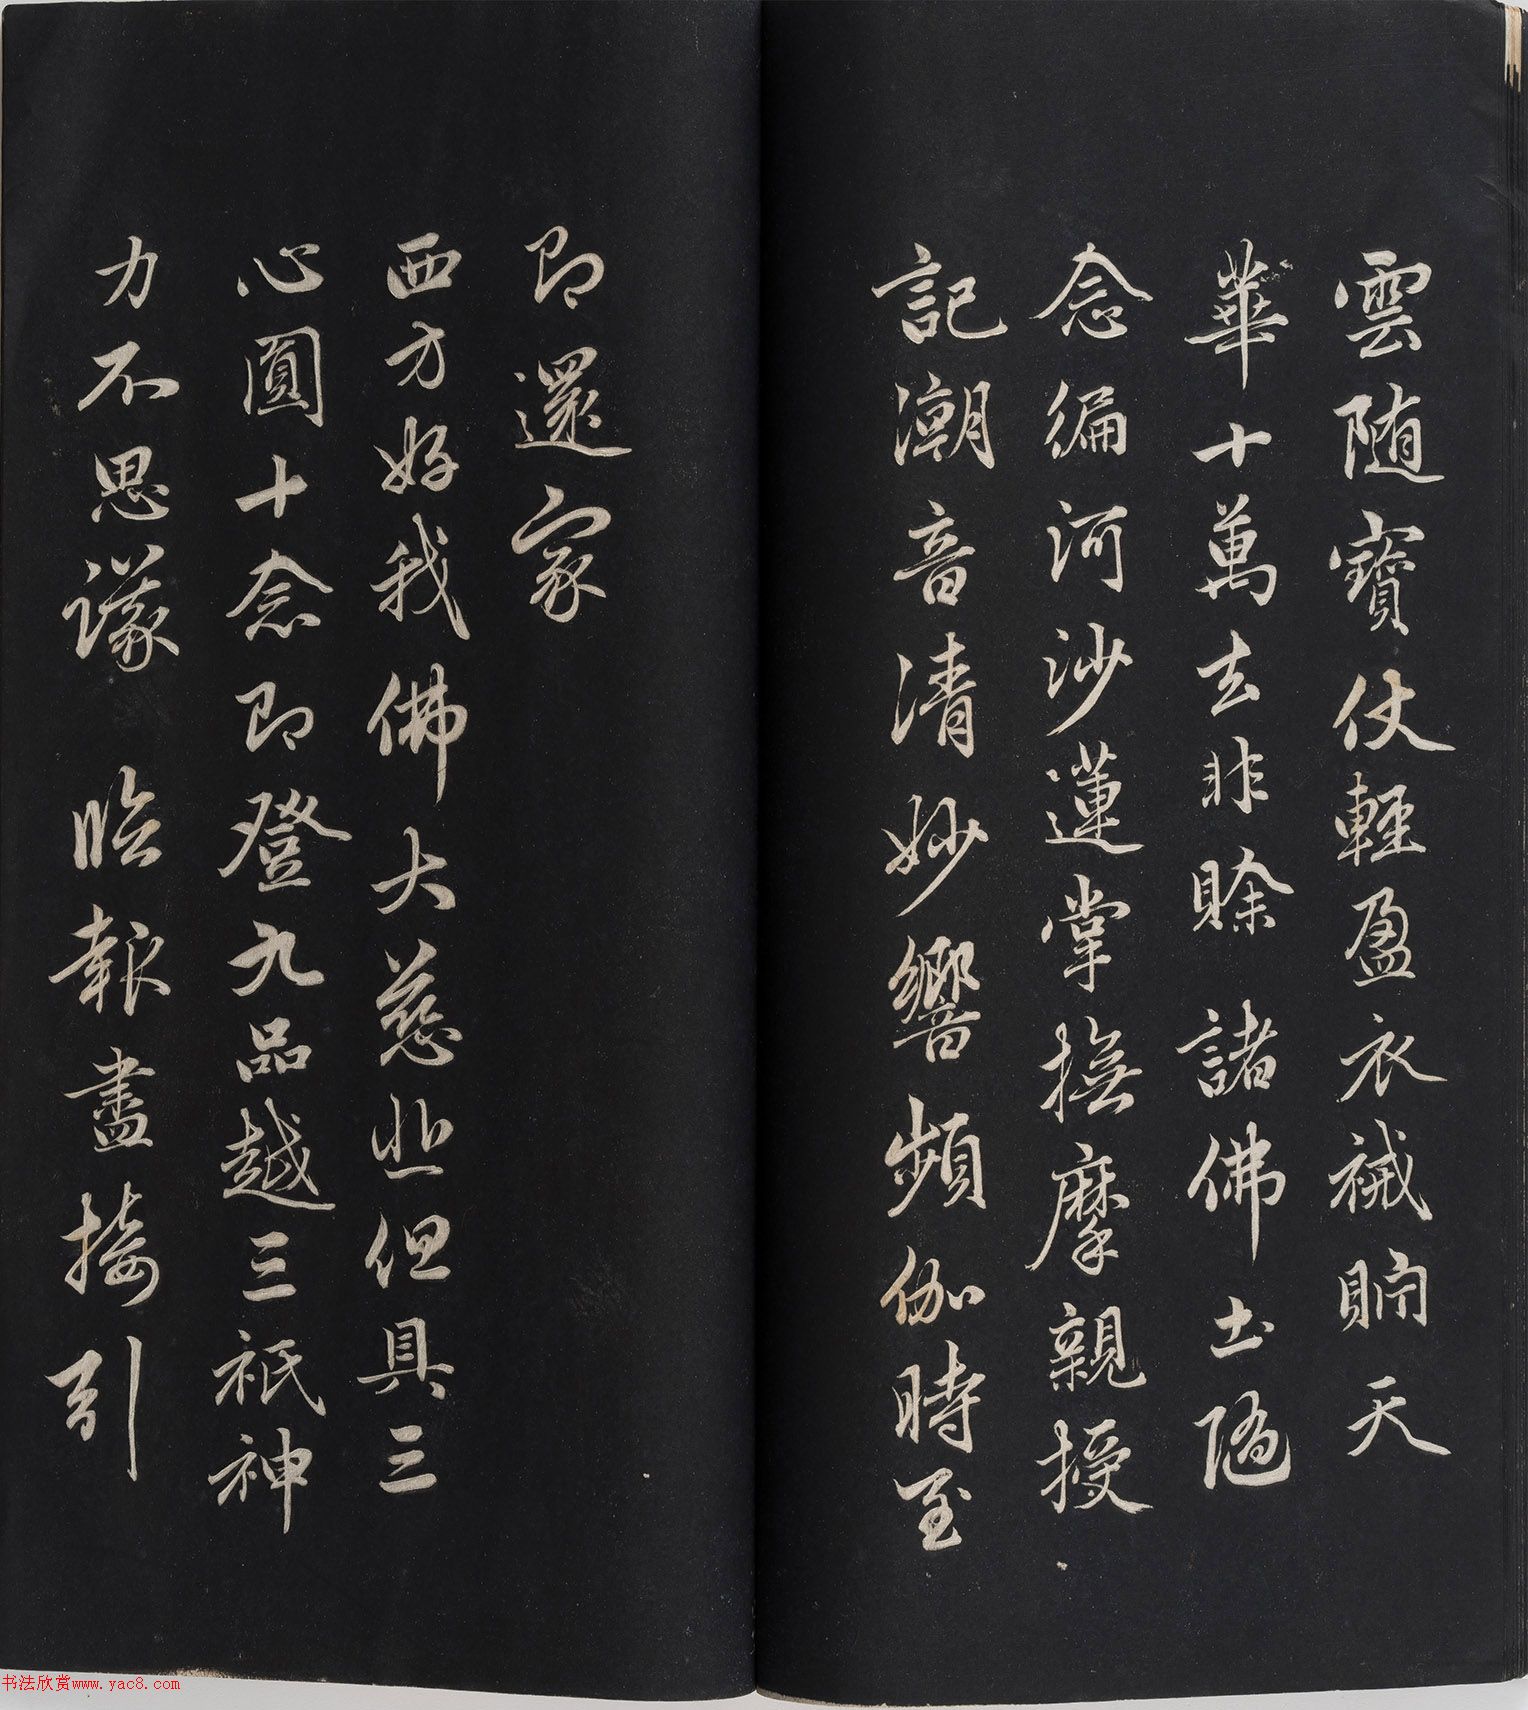 雲随寶仗輕盈衣祴貯天
華十萬去非賒諸佛土隨
念徧河沙蓮掌撫摩親授
記潮音清妙響頻伽時至
即還家
西方好我佛大慈悲但具三
心圓十念即登九品越三祇神
力不思議 臨報盡接引
书法欣赏www.yac8.com